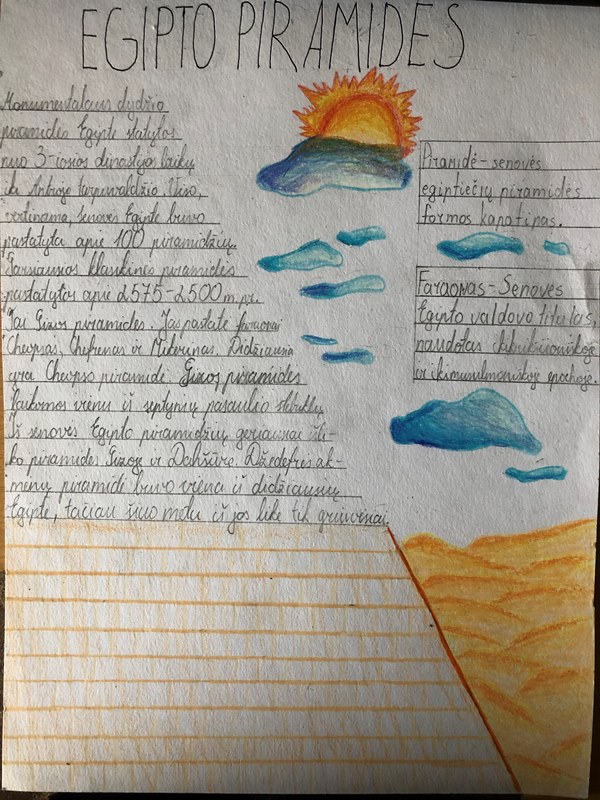 EGIPTO PIRAMIDĖS
Monumentalaus dydžio
piramidės Egipte statytos
nuo 3-iosios dinastijos laikų
iki Antrojo tarpuvaldžio. Viso,
vertinama, senovės Egipte buvo
pastatyta apie 100 piramidžių.
Garsiausios klasikinės piramidės
pastatytos apie 2575-2500 m. pr.
Tai Gizos piramidės. Jas pastatė faraonai
Cheopsas, Chefrenas ir Mikerinas. Didžiausia
yra Cheopso piramidė. Gizos piramidės
laikomos vienu iš septynių pasaulio stebuklų
Iš senovės Egipto piramidžių geriausiai išli-
ko piramidės Gizoje ir Dahšūre. Džedefrės ak-
menų piramidė buvo viena iš didžiausių
Egipte, tačiau šiuo metu iš jos likę tik griuvėsiai.
Piramidė-senovės
egiptiečių piramidės
formos kapatinas.
Faraonas-Senovės
Egipto valdovo titulas,
naudotas ikikrikščioniškoje
ir ikimusulmoniškoje epochoje.